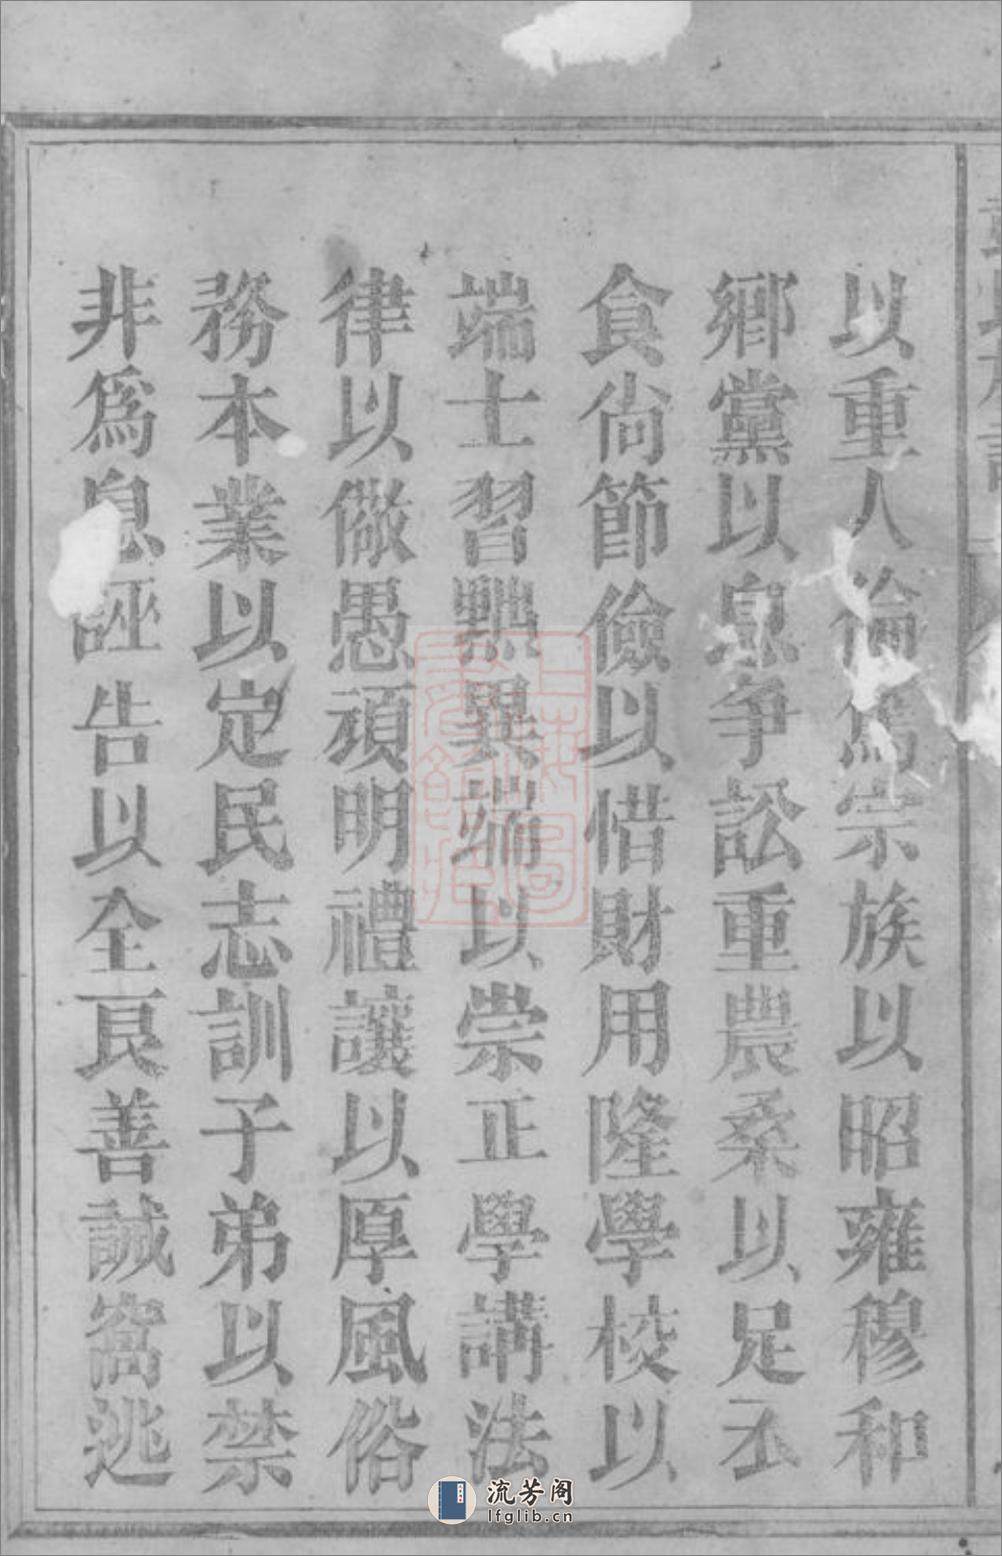 以重人倫篤宗族以昭雍穆和
鄉黨以息争訟重農桑以足衣
食尚節儉以惜財用隆學校以
端士習黜異端以崇正學講法
律以儆愚頑明禮讓以厚風俗
務本業以定民志訓子弟以禁
非爲息誣告以全良善誡窩逃
流芳阁
lfglib.cn